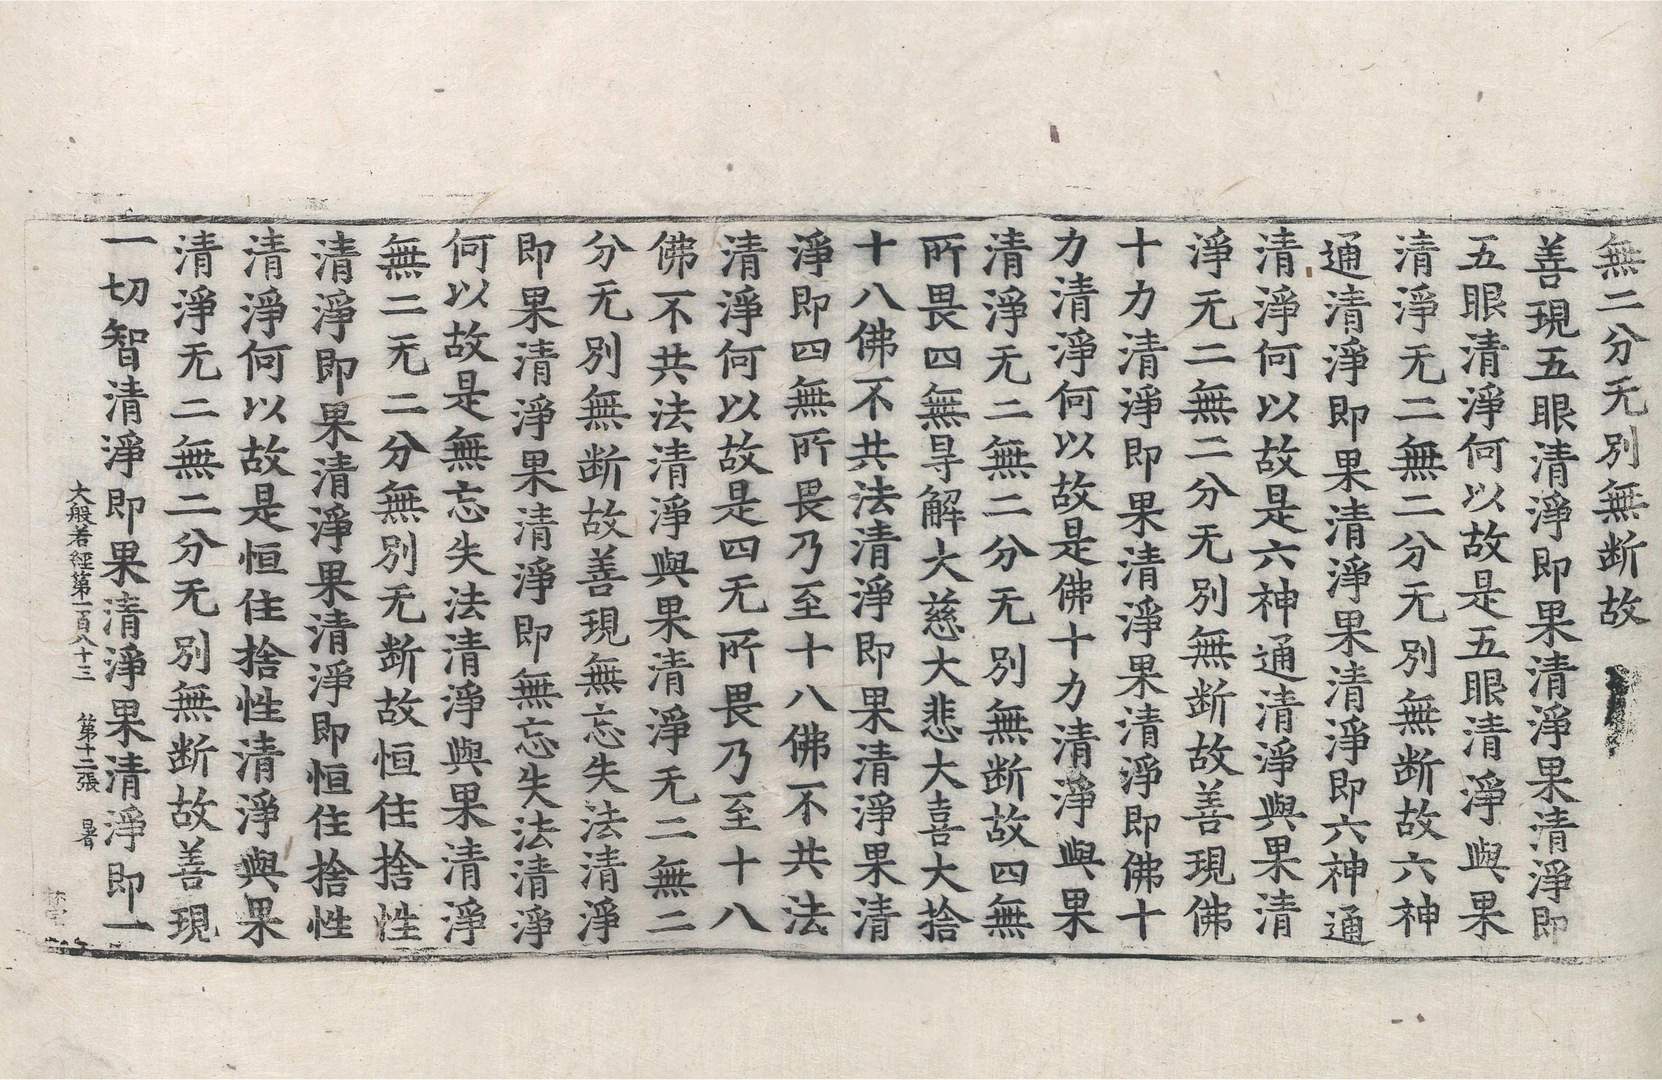 無二分无別無断故
善現五眼清淨即果清淨果清淨即
五眼清淨何以故是五眼清淨與果
清淨无二無二分无別無断故六神
通清淨即果清淨果清淨即六神通
清淨何以故是六神通清淨與果清
淨无二無二分无別無断故善現佛
十力清淨即果清淨果清淨即佛十
力清淨何以故是佛十力清淨與果
清淨无二無二分无別無断故四無
所畏四無㝵解大慈大悲大喜大捨
十八佛不共法清淨即果清淨果清
淨即四無所畏乃至十八佛不共法
清淨何以故是四无所畏乃至十八
佛不共法清淨與果清淨无二無二
分无別無断故善現無忘失法清淨
即果清淨果清淨即無忘失法清淨
何以故是無忘失法清淨與果清淨
無二无二分無別无断故恒住捨性
清淨即果清淨果清淨即恒住捨性
清淨何以故是恒住捨性清淨與果
清淨无二無二分无別無断故善現
一切智清淨即果清淨果清淨即一
大般若經第一百八十三 第十二張